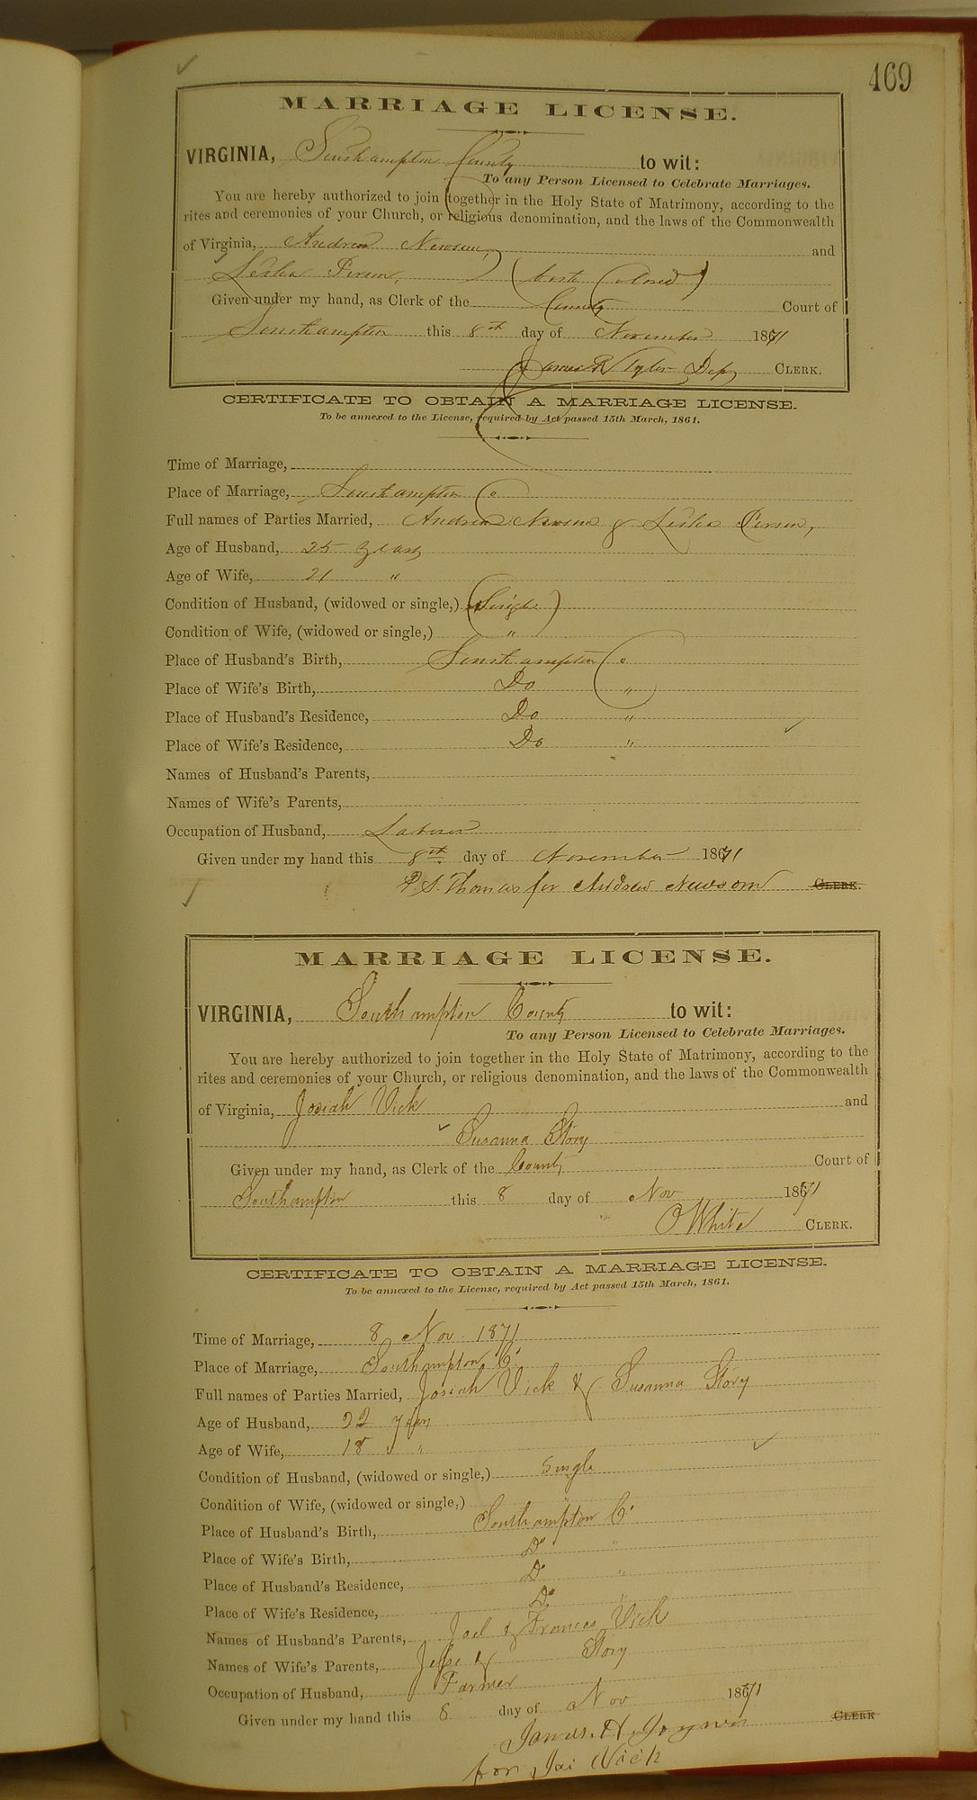 469
MARRIAGE LICENSE.
VIRGINIA, Southampton County to wit:
To any Person Licensed to Celebrate Marriages.
You are hereby authorized to join together in the Holy State of Matrimony, according to the
rites and ceremonies of your Church, or religious denomination, and the laws of the Commonwealth
of Virginia, Andrew Newsom, and
Person, (both Colored)
Given under my hand, as Clerk of the County Court of
Southampton this 8th day of November 1871
James R Tyler Depy CLERK.
CERTIFICATE TO OBTAIN A MARRIAGE LICENSE.
To be annexed to the License, required by Act passed 15th March, 1861.
Time of Marriage,
Place of Marriage, Southampton Co
Full names of Parties Married, Andrew Newsom & Person,
Age of Husband, 25 years
Age of Wife, 21 "
Condition of Husband, (widowed or single,) Single
Condition of Wife, (widowed or single,) "
Place of Husband's Birth, Southampton Co
Place of Wife's Birth, Do "
Place of Husband's Residence, Do "
Place of Wife's Residence, Do "
Names of Husband's Parents,
Names of Wife's Parents,
Occupation of Husband, Laborer
Given under my hand this 8th day of November 1871
P. S. Thomas for Andrew Newsom CLERK.
MARRIAGE LICENSE.
VIRGINIA, Southampton County to wit:
To any Person Licensed to Celebrate Marriages.
You are hereby authorized to join together in the Holy State of Matrimony, according to the
rites and ceremonies of your Church, or religious denomination, and the laws of the Commonwealth
of Virginia, Josiah Vick and
Susanna Story
Given under my hand, as Clerk of the County Court of
Southampton this 8 day of Nov 1871
O White CLERK.
CERTIFICATE TO OBTAIN A MARRIAGE LICENSE.
To be annexed to the License, required by Act passed 15th March, 1861.
Time of Marriage, 8 Nov 1871
Place of Marriage, Southampton C.
Full names of Parties Married, Josiah Vick & Susanna Story
Age of Husband, 22 years
Age of Wife, 18 "
Condition of Husband, (widowed or single,) Single
Condition of Wife, (widowed or single,) "
Place of Husband's Birth, Southampton C.
Place of Wife's Birth, Do "
Place of Husband's Residence, Do "
Place of Wife's Residence, Do "
Names of Husband's Parents, Joel & Frances Vick
Names of Wife's Parents, Jesse & Story
Occupation of Husband, Farmer
Given under my hand this 8 day of Nov 1871
James. H. CLERK
for Jos Vick